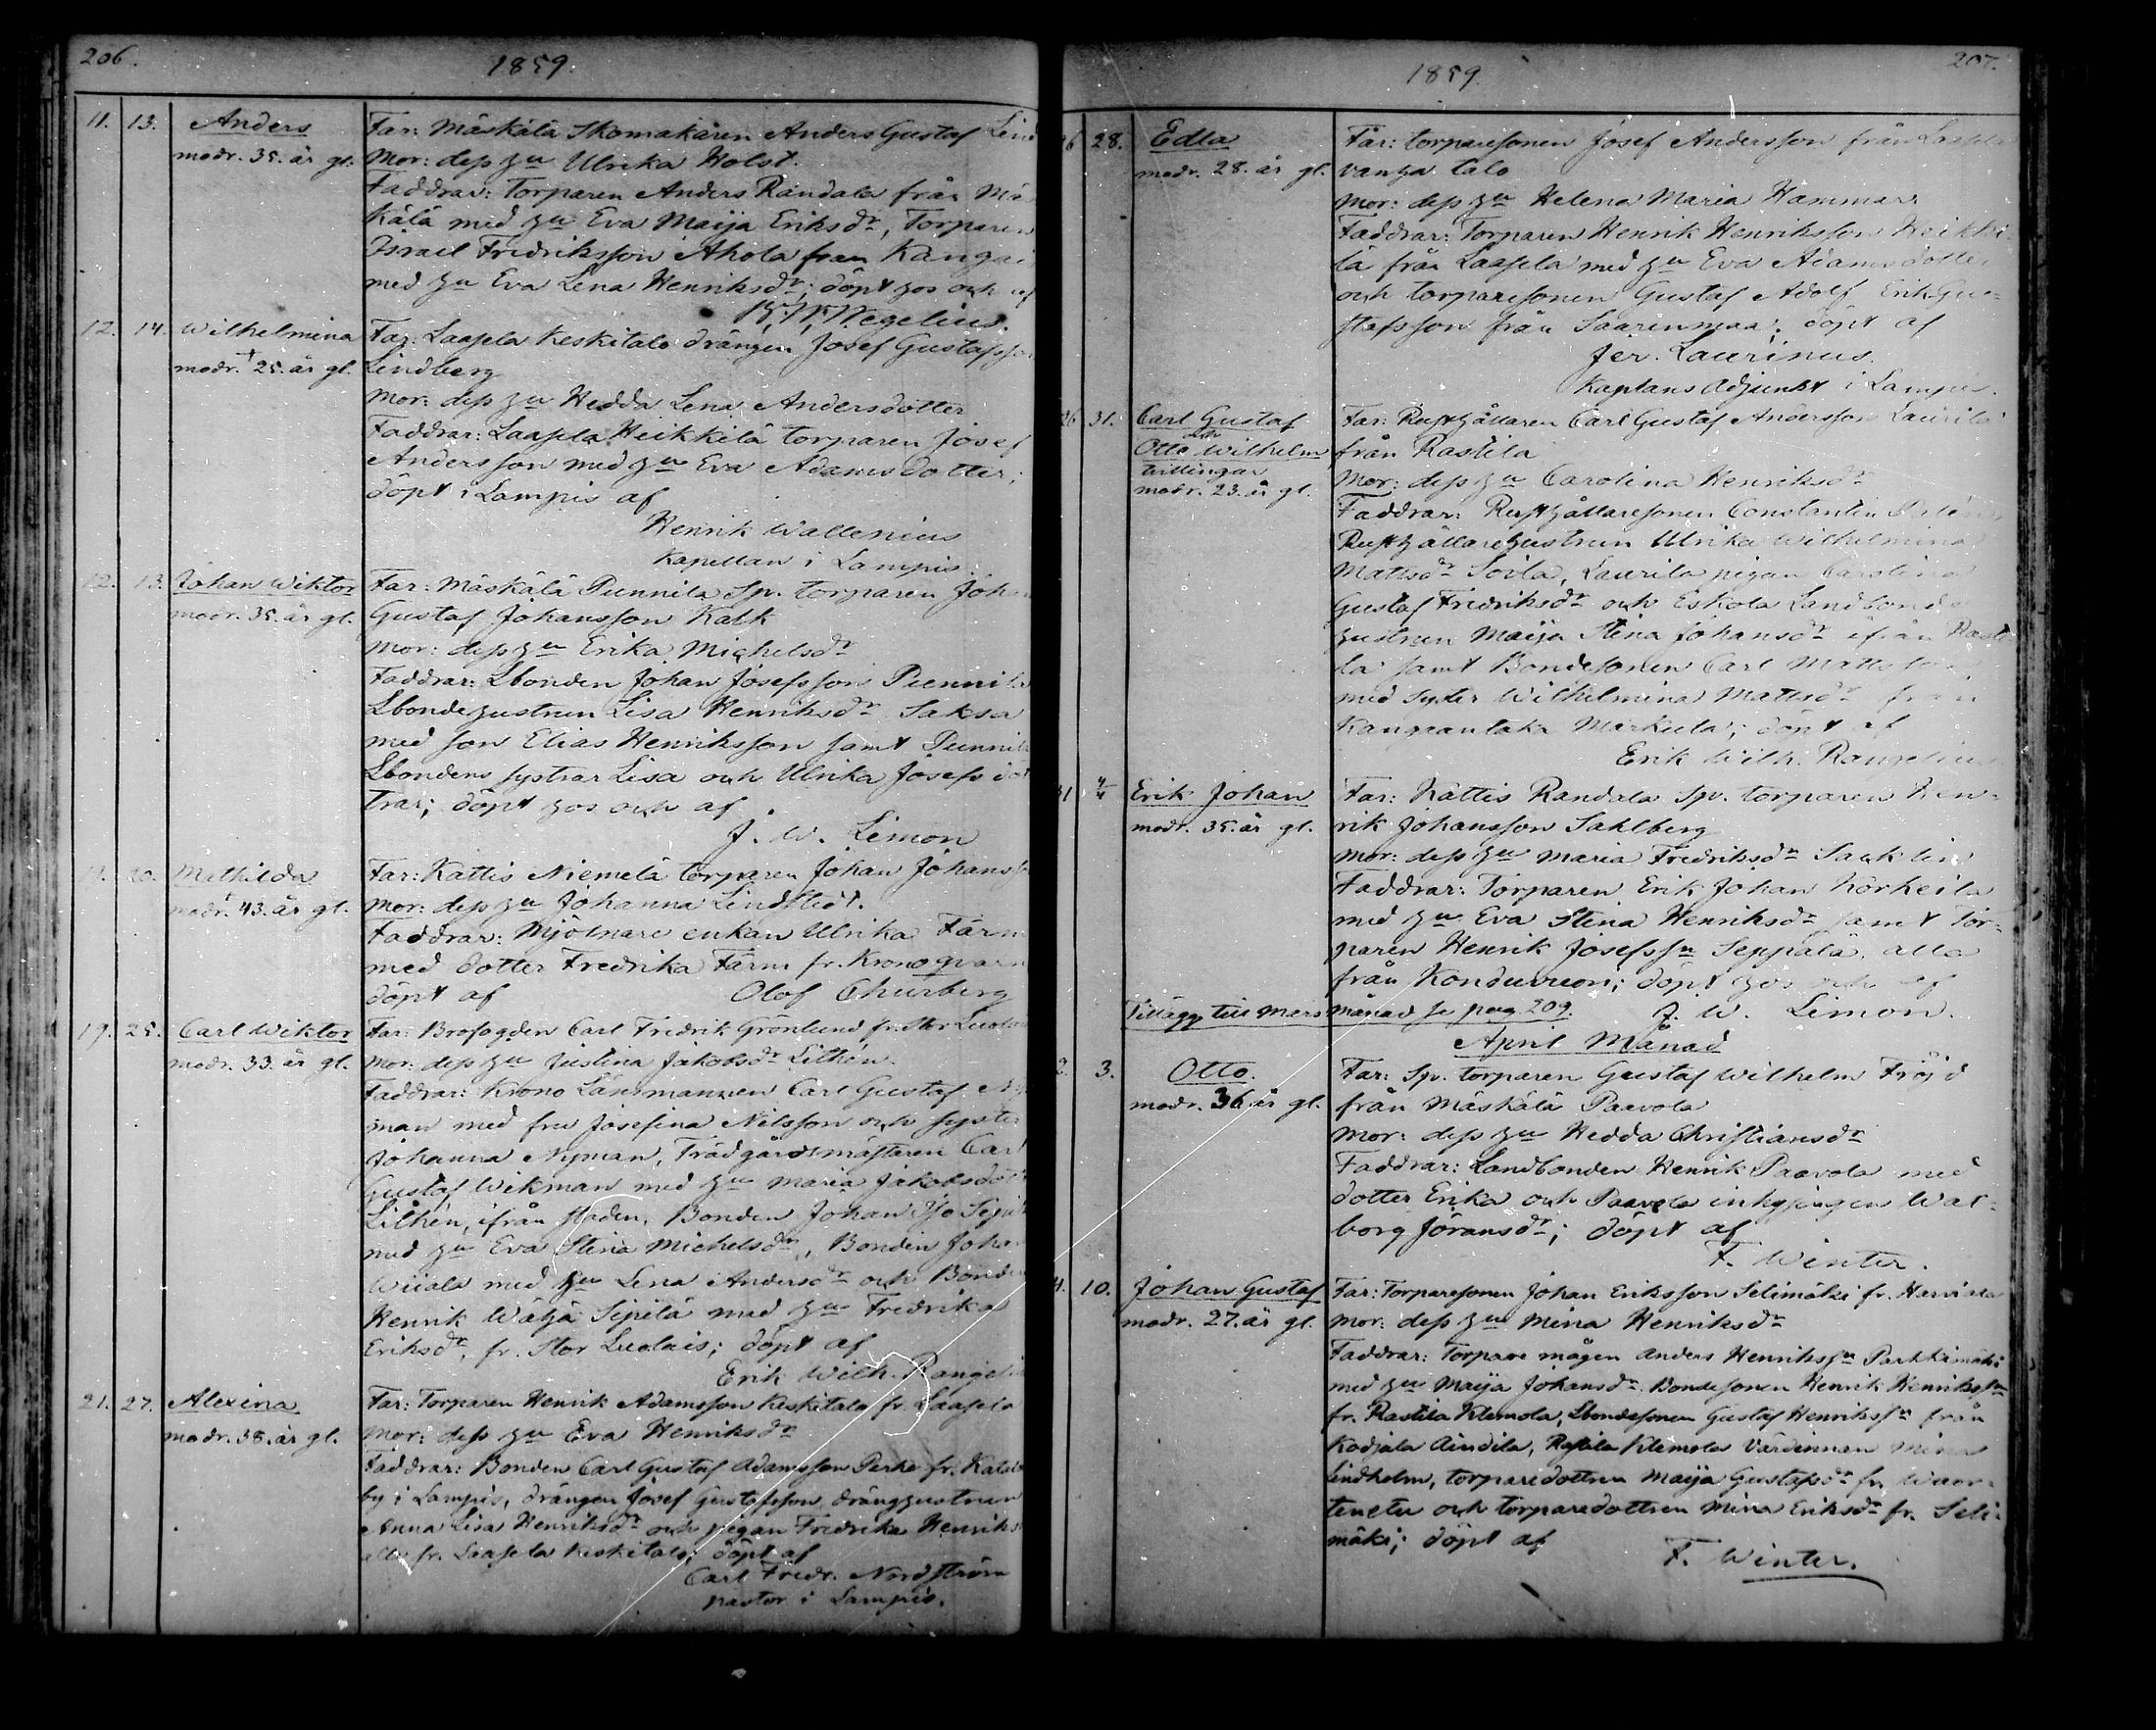 206.
1859.
11. 13. Anders
modr. 35. år gl.
Far: Mäskälä Skomakaren Anders Gustaf Lind
Mor: dess hu Ulrika Holst.
Faddrar: Torparen Anders Randala från Mä
kälä med hu Eva Maija Eriksdr, Torparen
Israel Fredriksson Ahola från Kangai
med hu Eva Lena Henriksdr; döpt hos och af
Wegelius.
12. 14. Wilhelmina
modr. 25. år gl.
Far: Laasola Keskitalo drängen Josef Gustafsso
Lindberg
Mor: dess hu Hedda Lena Andersdotter
Faddrar: Laasola Heikkilä torparen Josef
Andersson med hu Eva Adamsdotter;
döpt i Lampis af
Henrik Wallenius
Kapellan i Lampis.
12. 13. Johan Wiktor
modr. 35. år gl.
Far: Mäskälä Punnila Sp. torparen Joh
Gustaf Johansson Kalk
Mor: dess hu Erika Michelsdr
Faddrar: Lbonden Johan Josefsson Punnila
Lbondehustrun Lisa Henriksdr Saksa
med son Elias Henriksson samt Punnila
Lbondens systrar Lisa och Ulrika Josefsdöt
trar; döpt hos och af
J. W. Limon
20. Mathilda
modr. 43. år gl.
Far: Kattis Niemelä torparen Johan Johanss
Mor: dess hu Johanna Lindstedt.
Faddrar: Mjölnare enkan Ulrika Färm
med dotter Fredrika Färm fr. Kronoqvarn
döpt af Olof Churberg
19. 25. Carl Wiktor
modr. 33. år gl.
Far: Brofogden Carl Fredrik Grönlund fr. Stor Luola
Mor: dess hu Justina Jakobsdr Lithén.
Faddrar: Krono Länsmannen Carl Gustaf Ny
man med fru Josefina Nilsson och syster
Johanna Nyman, Trädgårdsmästaren Carl
Gustaf Wikman med hu Maria Jakobsdott
Lithén, ifrån staden, Bonden Johan Iso Sipil
med hu Eva Stina Michelsdr, Bonden Joha
Wiiala med hu Lena Andersdr och Bonden
Henrik Wähä Sipilä med hu Fredrika
Eriksdr, fr. Stor Luolais; döpt af
Erik Wilh. Rangeli
21. 27. Alexina
modr. 38. år gl.
Far: Torparen Henrik Adamsson Keskitalo fr. Laasola
Mor: dess hu Eva Henriksdr
Faddrar: Bonden Carl Gustaf Adamsson Perho fr. Katal
by i Lampis, drängen Josef Gustafsson, dränghustrun
Anna Lisa Henriksdr och pigan Fredrika Henriks
alla fr. Laasola Keskitalo; döpt af
Carl Fredr. Nordström
pastor i Lampis.
207.
1859.
26 28. Edla
modr. 28. år gl.
Far: torparesonen Josef Andersson från Laasola
vanha talo
Mor: dess hu Helena Maria Hammar
Faddrar: Torparen Henrik Henriksson Heikki-
lä från Laasola med hu Eva Adamsdotter
och torparesonen Gustaf Adolf Erik Gu-
stafsson från Saarenmaa; döpt af
Jer. Laurinus.
Kaplans Adjunkt i Lampis.
26 31. Carl Gustaf
och
Otto Wilhelm
tvillingar
modr. 23. år gl.
Far: Rusthållaren Carl Gustaf Andersson Laurila
från Rastila
Mor: dess hu Carolina Henriksdr
Faddrar: Rusthållaresonen Constantin
Rusthållarehustrun Ulrika Wilhelmina
Mattsdr Sovla, Laurila pigan Carolina
Gustaf Fredriksdr och Eskola Landbonde
hustrun Maija Stina Johansdr ifrån Rasti
la samt Bondesonen Carl Matts
med syster Wilhelmina Mattsdr från
Kangaantaka Markula; döpt af
Erik Wilh. Rangelius
31 4/4 Erik Johan
modr. 35. år gl.
Far: Kattis Randala Sp. torparen Hen-
rik Johansson Sahlberg
Mor: dess hu Maria Fredriksdr Sacklin
Faddrar: Torparen Erik Johan Korkeila
med hu Eva Stina Henriksdr samt Tor-
paren Henrik Josefsn Seppälä, alla
från Konduvuori; döpt hos och af
J. W. Limon.
Tillägg till Mars månad se pag 209.
April Månad
2. 3. Otto.
modr. 36 år gl.
Far: Sp. torparen Gustaf Wilhelm Fröjd
från Mäskälä Paavola
Mor: dess hu Hedda Christiansdr
Faddrar: Landbonden Henrik Paavola med
dotter Erika och Paavola inhysingen Wal-
borg Göransdr; döpt af
F. Winter.
4. 10. Johan Gustaf
modr. 27. år gl.
Far: Torparesonen Johan Eriksson Selimäki fr. Harviala
Mor: dess hu Mina Henriksdr
Faddrar: Torpare mågen Anders Henrikssn Parkkimäki
med hu Maija Johansdr. Bondesonen Henrik Henrikssn
fr. Rastila Klemola, Lbondesonen Gustaf Henrikssn från
Kodjala Aindila, Rastila Klemola Värdinnan Mina
Lindholm, torparedottren Maija Gustafsdr fr. Wuor-
tenetu och torparedottren Mina Eriksdr fr. Seli-
mäki; döpt af
F. Winter.